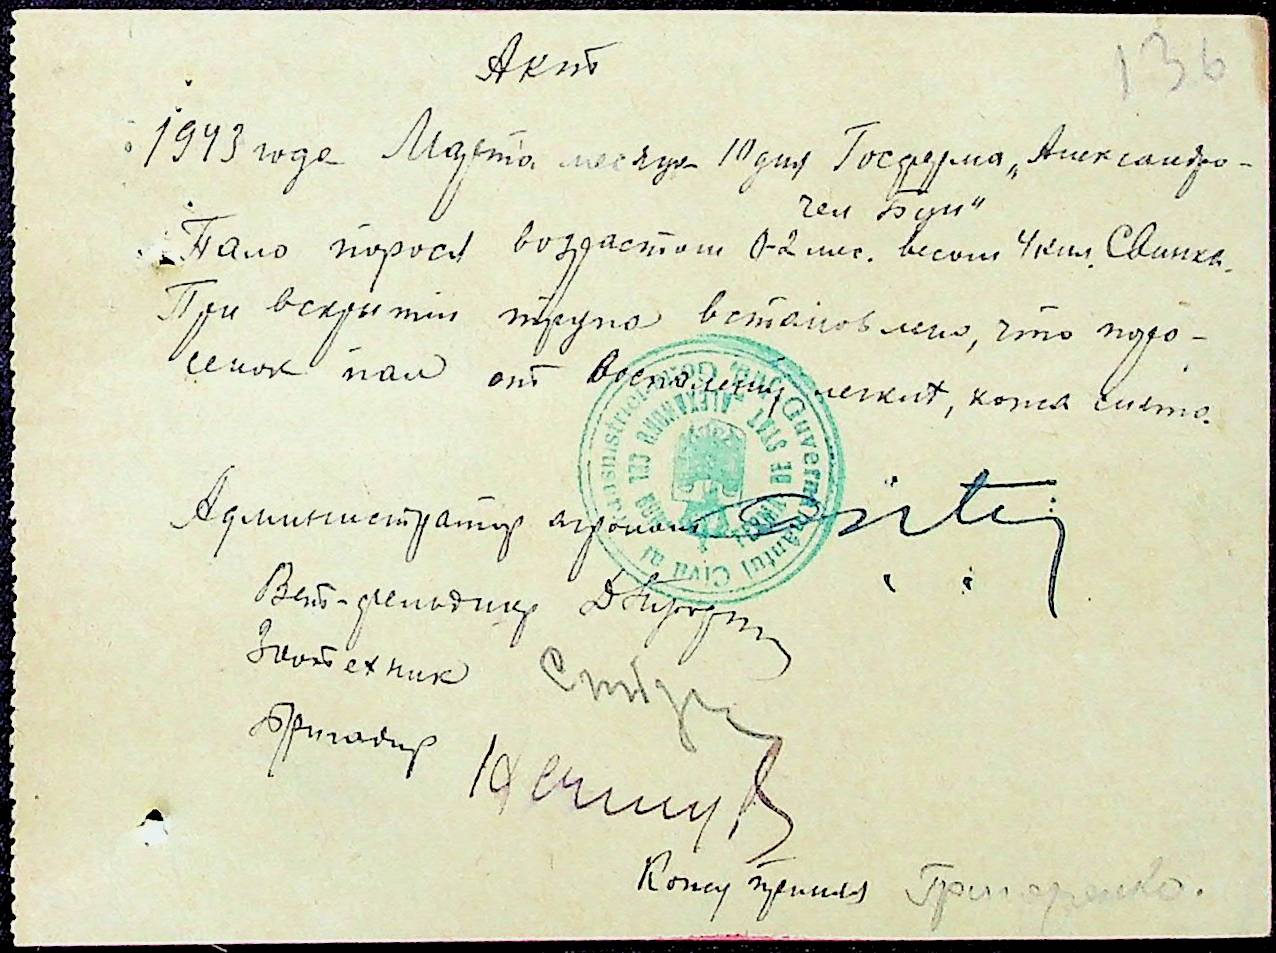 136
Акт
1943 года Марта месяца 10 дня Госферма „Александро-
чел Бун"
Пало порося возрастом 0-2 мес. весом 4 кил. Свинка.
При вскрытии трупа встановлено, что поро-
сенок пал от воспаления легких, кожа снята.
Guvernământul Civil al Transnistriei
DE STAT „ALEXANDRU CEL BUN"
Администратор агроном
Вет-фельдшер
Зоотехник
Бригадир
Кожу принял Григоренко.